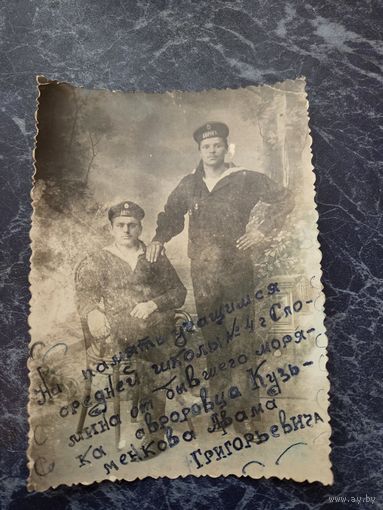 На память учащимся
средней школы №4 г Сло-
нима от бывшего моря-
ка авроровца Кузь-
менкова Авама
Григорьевича
www.ay.by